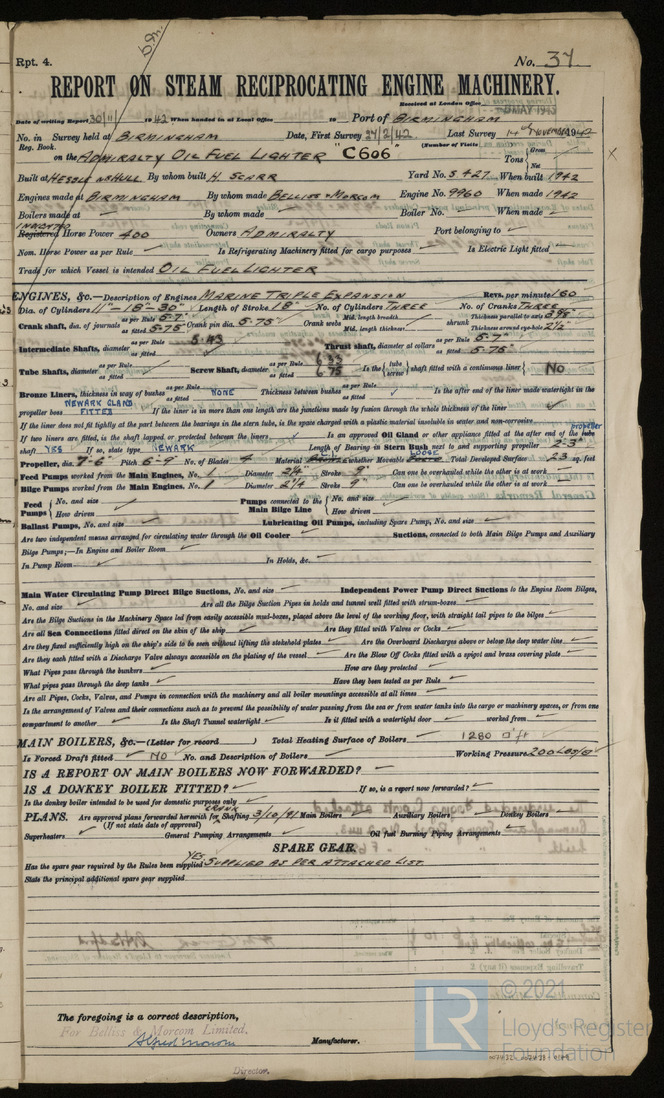 Rpt. 4.
No. 37.
REPORT ON STEAM RECIPROCATING ENGINE MACHINERY.
Received at London Office
Date of writing Report 30/11 1942 When handed in at Local Office 19 Port of BIRMINGHAM
No. in Survey held at BIRMINGHAM Date, First Survey 24/2/42 Last Survey 14th NOVEMBER 1942
Reg. Book. (Number of Visits)
on the ADMIRALTY OIL FUEL LIGHTER "C606" Tons Gross Net
Built at HESSLE NR HULL By whom built H SCARR Yard No. S.427 When built 1942
Engines made at BIRMINGHAM By whom made BELLISS & MORCOM Engine No. 9960 When made 1942
Boilers made at By whom made Boiler No. When made
INDICATED
Registered Horse Power 400 Owners ADMIRALTY Port belonging to
Nom. Horse Power as per Rule Is Refrigerating Machinery fitted for cargo purposes Is Electric Light fitted
Trade for which Vessel is intended OIL FUEL LIGHTER
ENGINES, &c.—Description of Engines MARINE TRIPLE EXPANSION Revs. per minute 160
Dia. of Cylinders 11"-18"-30" Length of Stroke 18" No. of Cylinders THREE No. of Cranks THREE
Crank shaft, dia. of journals as per Rule 5.7" as fitted 5.75" Crank pin dia. 5.75" Crank webs Mid. length breadth Mid. length thickness shrunk Thickness parallel to axis 3 3/8" Thickness around eye-hole 2 1/2"
Intermediate Shafts, diameter as per Rule 5.43 as fitted Thrust shaft, diameter at collars as per Rule 5.7" as fitted 5.75"
Tube Shafts, diameter as per Rule as fitted Screw Shaft, diameter as per Rule 6.33 as fitted 6.75 Is the tube screw shaft fitted with a continuous liner No
Bronze Liners, thickness in way of bushes as per Rule as fitted NONE Thickness between bushes as per Rule as fitted Is the after end of the liner made watertight in the
propeller boss NEWARK GLAND FITTED If the liner is in more than one length are the junctions made by fusion through the whole thickness of the liner
If the liner does not fit tightly at the part between the bearings in the stern tube, is the space charged with a plastic material insoluble in water and non-corrosive
If two liners are fitted, is the shaft lapped or protected between the liners Is an approved Oil Gland or other appliance fitted at the after end of the tube propeller
shaft YES If so, state type NEWARK Length of Bearing in Stern Bush next to and supporting propeller 2'-3"
Propeller, dia. 7'-6" Pitch 6'-9" No. of Blades 4 Material whether Moveable LOOSE Total Developed Surface 23 sq. feet
Feed Pumps worked from the Main Engines, No. 1 Diameter 2 1/4" Stroke 9" Can one be overhauled while the other is at work
Bilge Pumps worked from the Main Engines, No. 1 Diameter 2 1/4 Stroke 9" Can one be overhauled while the other is at work
Feed Pumps No. and size How driven Pumps connected to the Main Bilge Line No. and size How driven
Ballast Pumps, No. and size Lubricating Oil Pumps, including Spare Pump, No. and size
Are two independent means arranged for circulating water through the Oil Cooler Suctions, connected to both Main Bilge Pumps and Auxiliary
Bilge Pumps;—In Engine and Boiler Room
In Pump Room In Holds, &c.
Main Water Circulating Pump Direct Bilge Suctions, No. and size Independent Power Pump Direct Suctions to the Engine Room Bilges,
No. and size Are all the Bilge Suction Pipes in holds and tunnel well fitted with strum-boxes
Are the Bilge Suctions in the Machinery Space led from easily accessible mud-boxes, placed above the level of the working floor, with straight tail pipes to the bilges
Are all Sea Connections fitted direct on the skin of the ship Are they fitted with Valves or Cocks
Are they fixed sufficiently high on the ship's side to be seen without lifting the stokehold plates Are the Overboard Discharges above or below the deep water line
Are they each fitted with a Discharge Valve always accessible on the plating of the vessel Are the Blow Off Cocks fitted with a spigot and brass covering plate
What Pipes pass through the bunkers How are they protected
What pipes pass through the deep tanks Have they been tested as per Rule
Are all Pipes, Cocks, Valves, and Pumps in connection with the machinery and all boiler mountings accessible at all times
Is the arrangement of Valves and their connections such as to prevent the possibility of water passing from the sea or from water tanks into the cargo or machinery spaces, or from one
compartment to another Is the Shaft Tunnel watertight Is it fitted with a watertight door worked from
MAIN BOILERS, &c.—(Letter for record ) Total Heating Surface of Boilers 1280 □'ft
Is Forced Draft fitted NO No. and Description of Boilers Working Pressure 200 LBS/□"
IS A REPORT ON MAIN BOILERS NOW FORWARDED?
IS A DONKEY BOILER FITTED? If so, is a report now forwarded?
Is the donkey boiler intended to be used for domestic purposes only
PLANS. Are approved plans forwarded herewith for CRANK Shafting 3/10/41 Main Boilers Auxiliary Boilers Donkey Boilers
(If not state date of approval)
Superheaters General Pumping Arrangements Oil fuel Burning Piping Arrangements
SPARE GEAR.
Has the spare gear required by the Rules been supplied YES. SUPPLIED AS PER ATTACHED LIST.
State the principal additional spare gear supplied
The foregoing is a correct description,
For Belliss & Morcom Limited.
Alfred Morcom
Manufacturer.
Director.
LR
© 2021
Lloyd's Register
Foundation